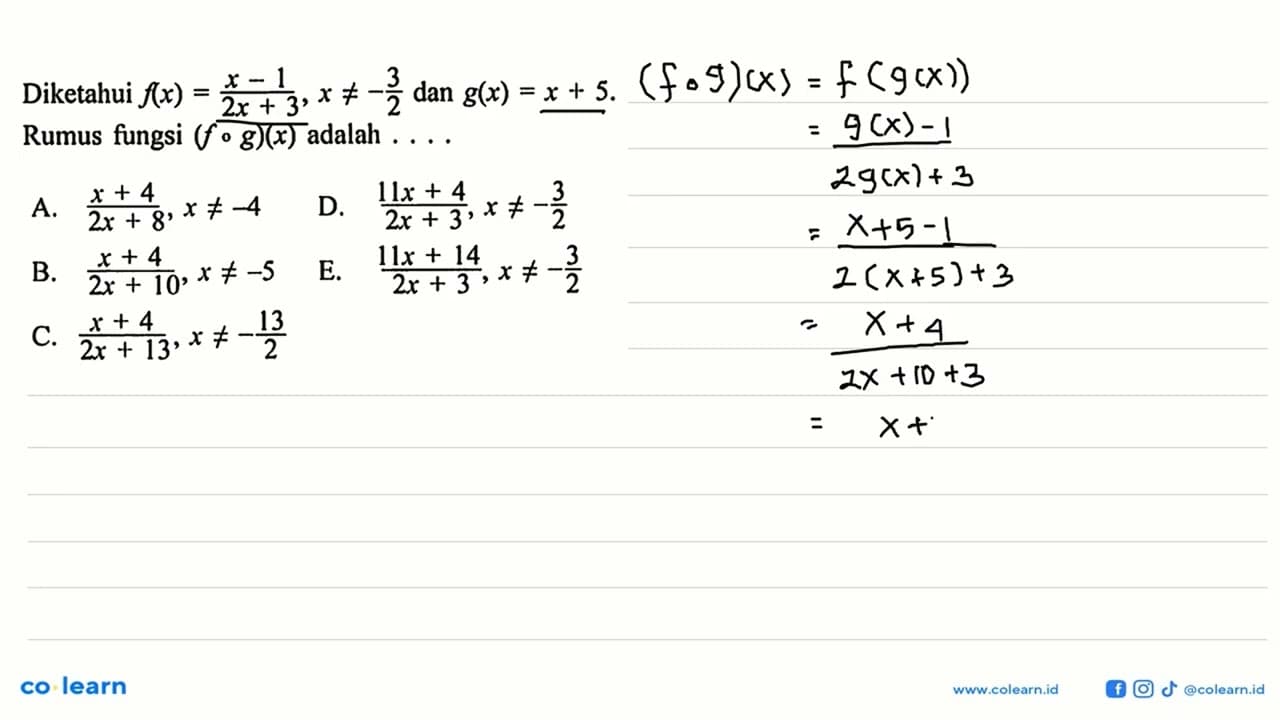 Diketahui f(x) = \frac{x - 1}{2x + 3}, x ≠ -\frac{3}{2} dan g(x) = x + 5.
Rumus fungsi (f ∘ g)(x) adalah . . . .
A. \frac{x + 4}{2x + 8}, x ≠ -4
B. \frac{x + 4}{2x + 10}, x ≠ -5
C. \frac{x + 4}{2x + 13}, x ≠ -\frac{13}{2}
D. \frac{11x + 4}{2x + 3}, x ≠ -\frac{3}{2}
E. \frac{11x + 14}{2x + 3}, x ≠ -\frac{3}{2}
(f∘g)(x) = f(g(x))
= \frac{g(x) - 1}{2g(x) + 3}
= \frac{x + 5 - 1}{2(x + 5) + 3}
= \frac{x + 4}{2x + 10 + 3}
= x +
co learn
www.colearn.id
@colearn.id